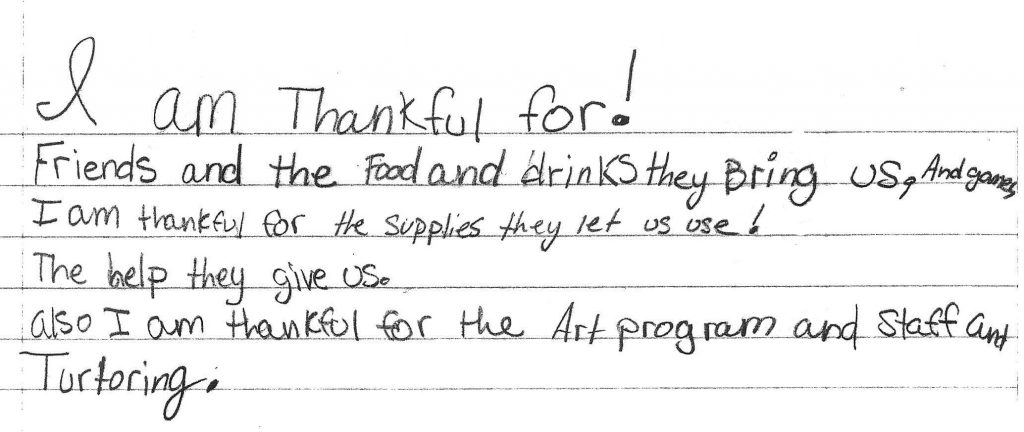 I am Thankful for!
Friends and the Food and drinks they Bring us, And games
I am thankful for the supplies they let us use!
The help they give us.
also I am thankful for the Art program and Staff and
Turtoring.